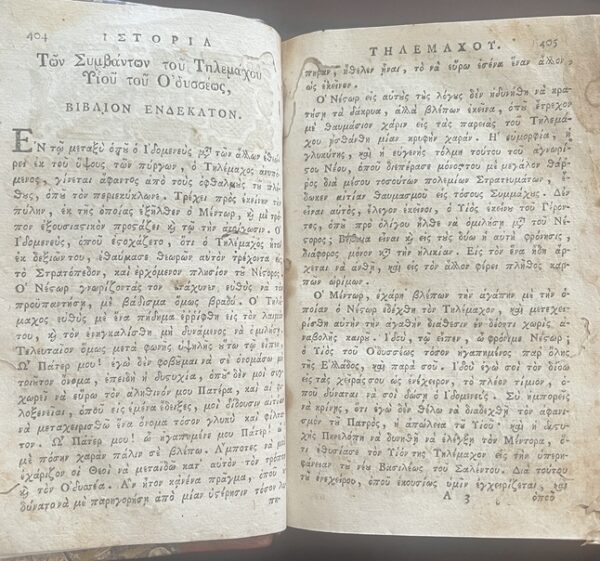 404 ΙΣΤΟΡΙΑ
Τῶν Συμβάντων τοῦ Τηλεμάχου
Υἱοῦ τοῦ Ὀδυσσέως,
ΒΙΒΛΙΟΝ ΕΝΔΕΚΑΤΟΝ.
ΕΝ τῷ μεταξὺ ὁποῦ ὁ Ἰδομενεὺς μὲ τῶν ἄλλων ἐθεώ-
ρει ἐκ τοῦ ὕψους τῶν πύργων, ὁ Τηλέμαχος
μενος, γίνεται ἄφαντος ἀπὸ τοὺς ὀφθαλμοὺς τοῦ πλή-
θους, ὁποῦ τὸν περιεκύκλωνε. Τρέχει πρὸς ἐκείνην τὴν
πύλην, ἐκ τῆς ὁποίας ἐξῆλθεν ὁ Μέντωρ, καὶ μὲ τρό-
πον ἐξουσιαστικὸν προστάζει καὶ τῷ τὴν ἀνοίγουσιν. Ὁ
Ἰδομενεὺς, ὁποῦ ἐστοχάζετο, ὅτι ὁ Τηλέμαχος ἦτον
ἐκ δεξιῶν του, ἐθαύμασε θεωρῶν αὐτὸν τρέχοντα εἰς
τὸ Στρατόπεδον, καὶ ἐρχόμενον πλησίον τοῦ Νέστορος.
Ὁ Νέστωρ γνωρίζοντάς τον ἐτάχυνεν εὐθὺς νὰ τὸν
προϋπαντήσῃ, μὲ βάδισμα ὅμως βραδύ. Ὁ Τηλέ-
μαχος εὐθὺς μὲ ἕνα πήδημα ἐρρίφθη εἰς τὸν λαιμόν
του, καὶ τὸν ἐνηγκαλίσθη μὴ δυνάμενος νὰ ὁμιλήσῃ.
Τελευταῖον ὅμως μετὰ φωνῆς ὑψηλῆς τῷ εἶπεν
Ὦ Πάτερ μου! ἐγὼ δὲν φοβοῦμαι νὰ σὲ ὀνομάσω μὲ
τοιοῦτον ὄνομα, ἐπειδὴ ἡ δυστυχία, ὁποῦ δέν μοι συγ-
χωρεῖ νὰ εὕρω τὸν ἀληθινόν μου Πατέρα, καὶ αἱ φι-
λοξενεῖαι, ὁποῦ εἰς ἐμένα ἔδειξες, μοὶ δίδουσιν αἰτίαν
νὰ μεταχειρισθῶ ἕνα ὄνομα τόσον γλυκὺ καὶ φίλτα-
τον. Ὦ Πάτερ μου! ὦ ἠγαπημένε μου Πάτερ!
μὲ πόσην χαρὰν πάλιν σὲ βλέπω. Ἄμποτες νὰ μοὶ
ἐχάριζον οἱ Θεοὶ νὰ μεταϊδῶ κατ' αὐτὸν τὸν τρόπον
καὶ τὸν Ὀδυσσέα. Ἂν ἦτον κανένα πρᾶγμα, ὁποῦ νὰ
δύνατο νὰ μὲ παρηγορήσῃ ἀπὸ μίαν ὑστέρησιν τόσον
ΤΗΛΕΜΑΧΟΥ. 405
ἤθελεν ἦναι, τὸ νὰ εὕρω ἐσένα ἕναν ἄλλον,
ὡς ἐκεῖνον.
Ὁ Νέστωρ εἰς αὐτοὺς τοὺς λόγους δὲν ἠδυνήθη νὰ κρα-
τήσῃ τὰ δάκρυα, ἀλλὰ βλέπων ἐκεῖνα, ὁποῦ ἔτρεχον
μὲ θαυμάσιον χάριν εἰς τὰς παρειὰς τοῦ Τηλεμά-
χου ᾐσθάνθη μίαν κρυφὴν χαράν. Ἡ εὐμορφία, ἡ
γλυκύτης, καὶ ἡ εὐγενὴς τόλμη τούτου τοῦ ἀγνωρί-
στου Νέου, ὁποῦ διεπέρασε μόνος του μὲ μεγάλον θάρ-
ρος διὰ μέσου τοσούτων πολεμίων Στρατευμάτων, ἔ-
δωκεν αἰτίαν θαυμασμοῦ εἰς τόσους Συμμάχους. Δὲν
εἶναι αὐτὸς, ἔλεγον ἐκεῖνοι, ὁ Υἱὸς ἐκείνου τοῦ Γέρον-
τος, ὁποῦ πρὸ ὀλίγου ἦλθε νὰ ὁμιλήσῃ μὲ τοῦ Νέ-
στορος; Βέβαια εἶναι καὶ εἰς τοὺς δύω ἡ αὐτὴ φρόνησις,
διάφορος μόνον τὴν ἡλικίαν. Εἰς τὸν ἕνα ἤδη ἄρ-
χεται νὰ ἀνθῇ, καὶ εἰς τὸν ἄλλον φέρει πλῆθος καρ-
πῶν ὡρίμων.
Ὁ Μέντωρ, ἐχάρη βλέπων τὴν ἀγάπην μὲ τὴν ὁ-
ποίαν ὁ Νέστωρ ἐδέχθη τὸν Τηλέμαχον, καὶ μετεχει-
ρίσθη αὐτὴν τὴν ἀγαθὴν διάθεσιν ἐν δέοντι χωρὶς ἀ-
ναβολῆς καιροῦ. Ἰδοὺ, τῷ εἶπεν, ὦ φρόνιμε Νέστωρ;
ὁ Υἱὸς τοῦ Ὀδυσσέως τόσον ἠγαπημένος παρ' ὅλης
τῆς Ἑλλάδος, καὶ παρὰ σοῦ. Ἰδοὺ ἐγὼ σοὶ τὸν δίδω
εἰς τὰς χεῖράς σου ὡς ἐνέχειρον, τὸ πλέον τίμιον, ὁ-
ποῦ δύναται νὰ σοὶ δώσῃ ὁ Ἰδομενεύς. Σὺ ἠμπορεῖς
νὰ κρίνῃς, ὅτι ἐγὼ δὲν θέλω νὰ διαδεχθῇ τὸν ἀφανισ-
μὸν τοῦ Πατρὸς, ἡ ἀπώλεια τοῦ Υἱοῦ· καὶ ἡ δυστυ-
χὴς Πηνελόπη νὰ δυνηθῇ νὰ ἐλέγξῃ τὸν Μέντορα, ὅ-
τι ἐθυσίασε τὸν Υἱόν της Τηλέμαχον εἰς τὴν ὑπερη-
φάνειαν τοῦ νέου Βασιλέως τοῦ Σαλέντου. Διὰ τούτου
τοῦ ἐνεχείρου, ὁποῦ ἑκουσίως ὑμῖν ἐγχειρίζεται, καὶ
Λ 3 ὁποῦ